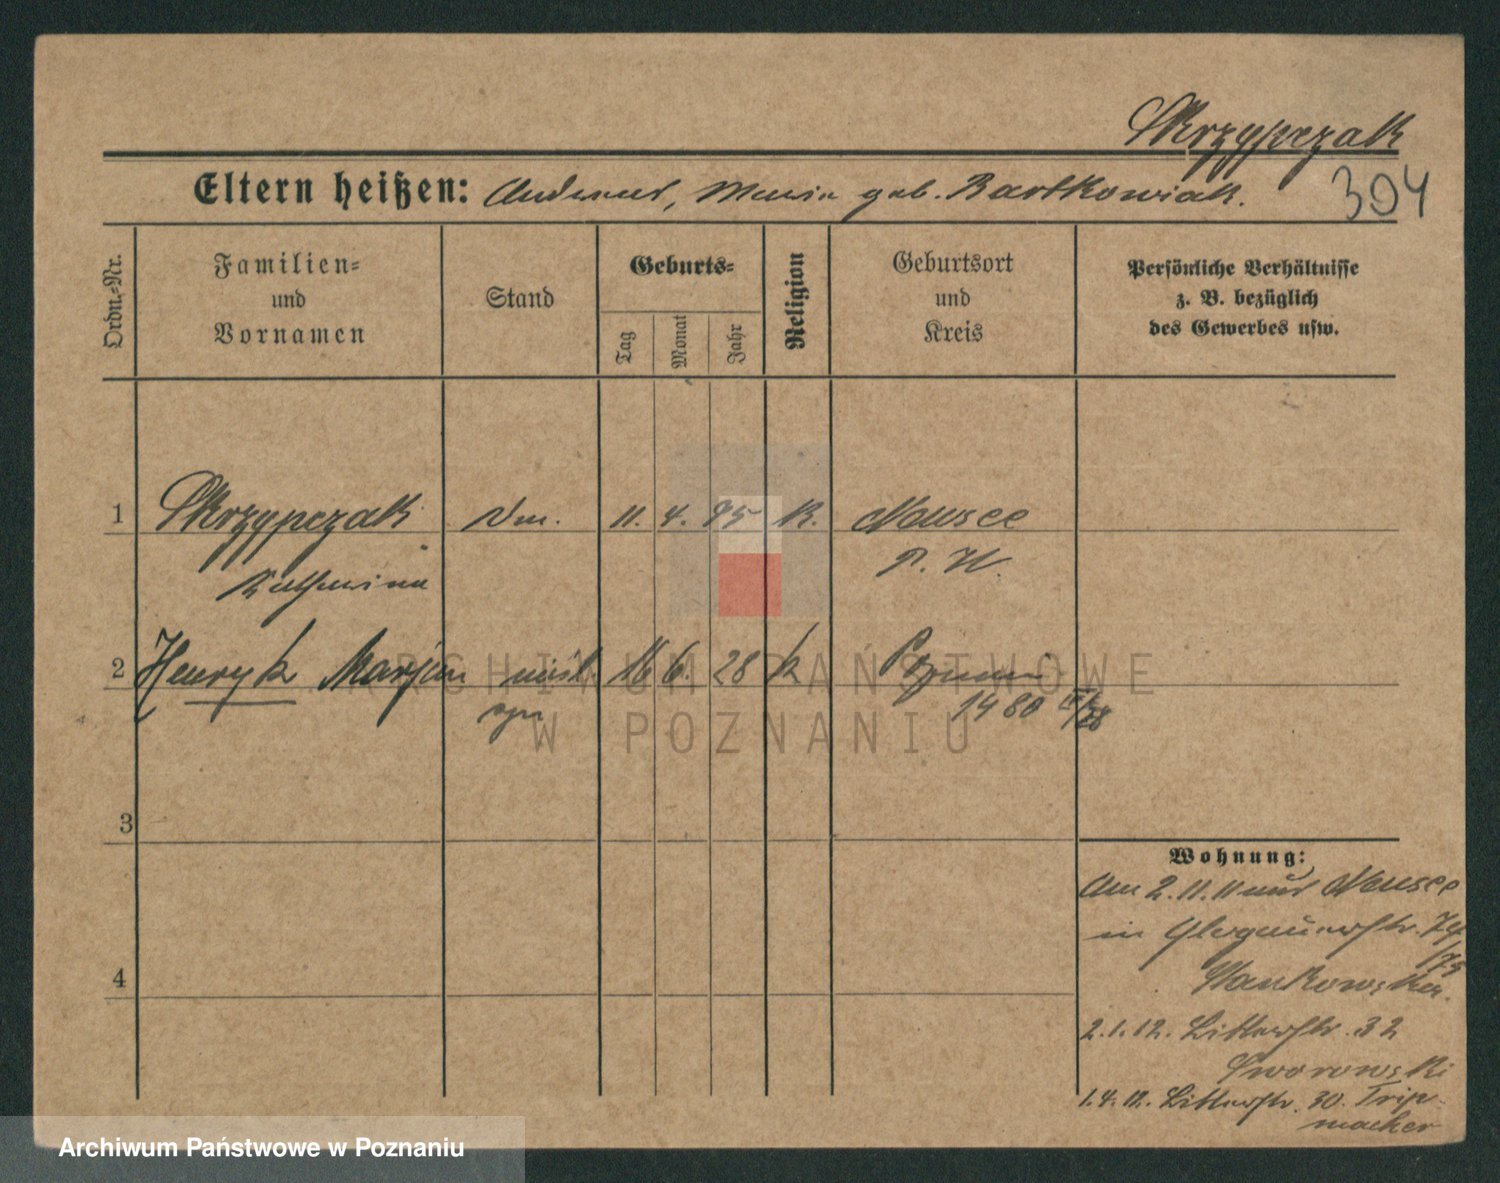 Skrzypczak
Eltern heißen: Andreas, Maria geb. Bartkowiak.
304
Ordn.-Nr.
Familien-
und
Vornamen
Stand
Geburts-
Tag
Monat
Jahr
Religion
Geburtsort
und
Kreis
Persönliche Verhältnisse
z. B. bezüglich
des Gewerbes usw.
1 Skrzypczak 11. 4. 95 K. Neusee
Katharina
2 Henryk Marjan 16 6. 28 k
1480
ARCHIWUM PAŃSTWOWE
W POZNANIU
3
4
Wohnung:
Am 2.11.11 aus Neusee
in Glogauerstr. 74
/75
Mankowska.
2.1.12. Ritterstr. 32
Sworowski
1.4.12. Ritterstr. 30. Trip-
macher
Archiwum Państwowe w Poznaniu